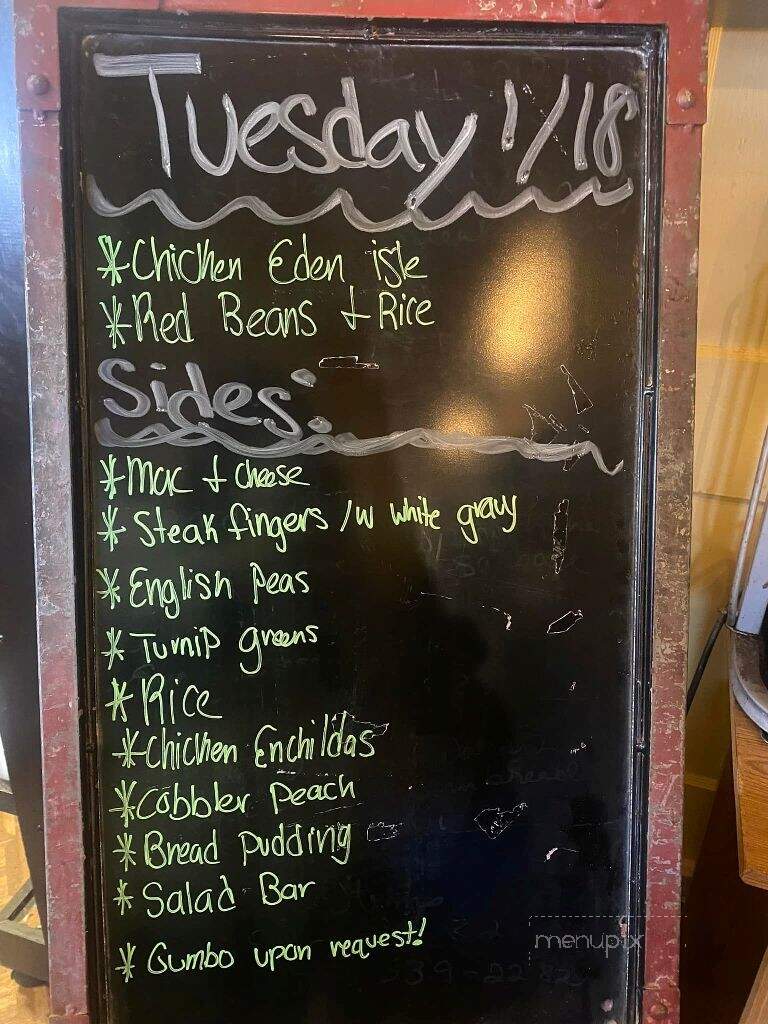 Tuesday 1/18
*Chicken Eden isle
*Red Beans & Rice
Sides:
*Mac & cheese
*Steak fingers /w white gravy
*English Peas
*Turnip greens
*Rice
*Chicken Enchildas
*Cobbler Peach
*Bread Pudding
*Salad Bar
*Gumbo upon request!
menupix